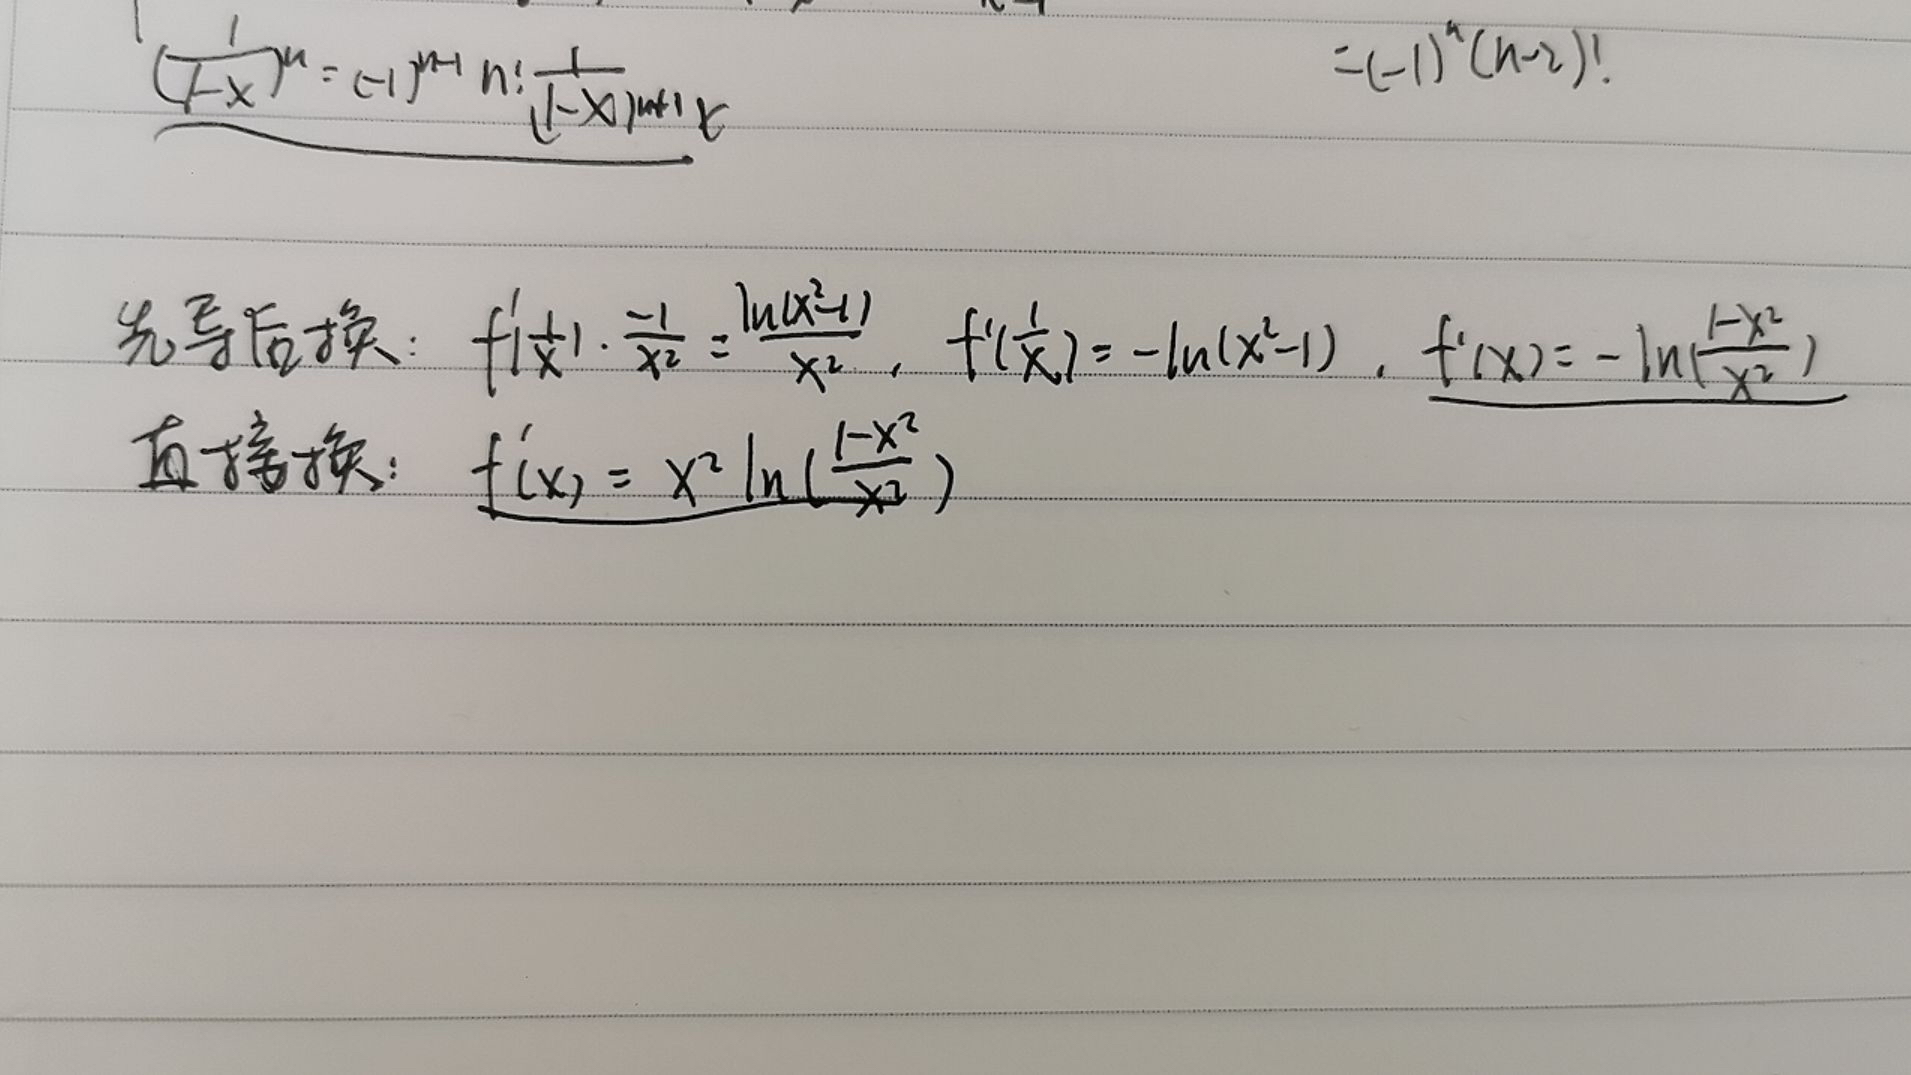 (1/(1-x))^n = (-1)^(n-1) n! 1/(1-x)^(n+1)
=(-1)^n (n-2)!
先导后换: f'(1/x) · -1/x² = ln(x²-1)/x² , f'(1/x) = -ln(x²-1) . f'(x) = -ln((1-x²)/x²)
直接换: f'(x) = x² ln((1-x²)/x²)